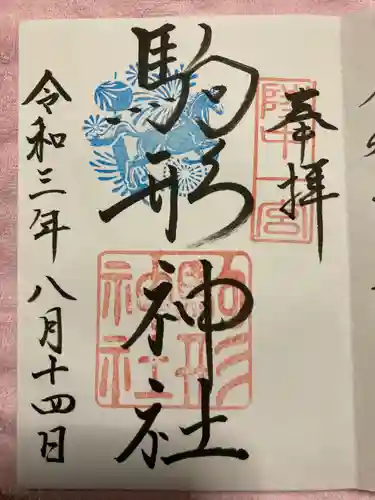 奉拝
陸中一宮
駒形神社
駒形神社
令和三年八月十四日